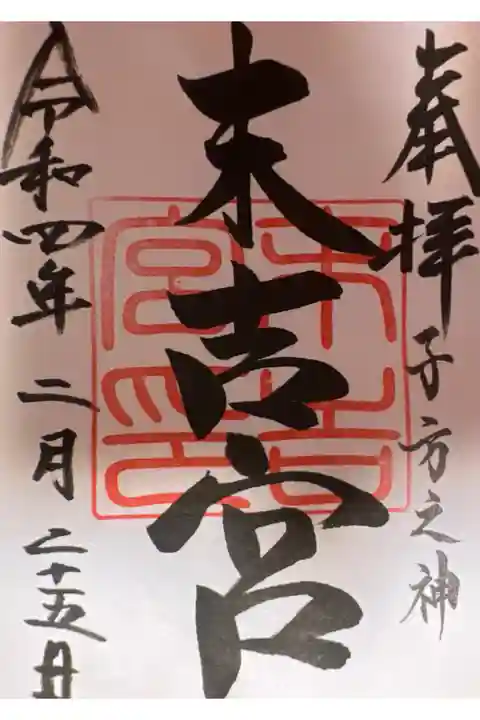 奉拝 子方之神
末吉宮
末吉宮印
令和四年 二月 二十五日